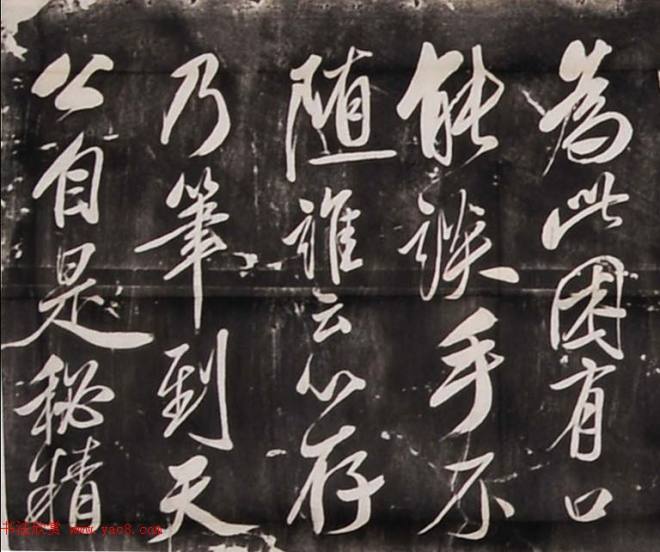 為此困有口
能談手不
随誰云心存
乃筆到天
公自是秘精
书法欣赏 www.yac8.com